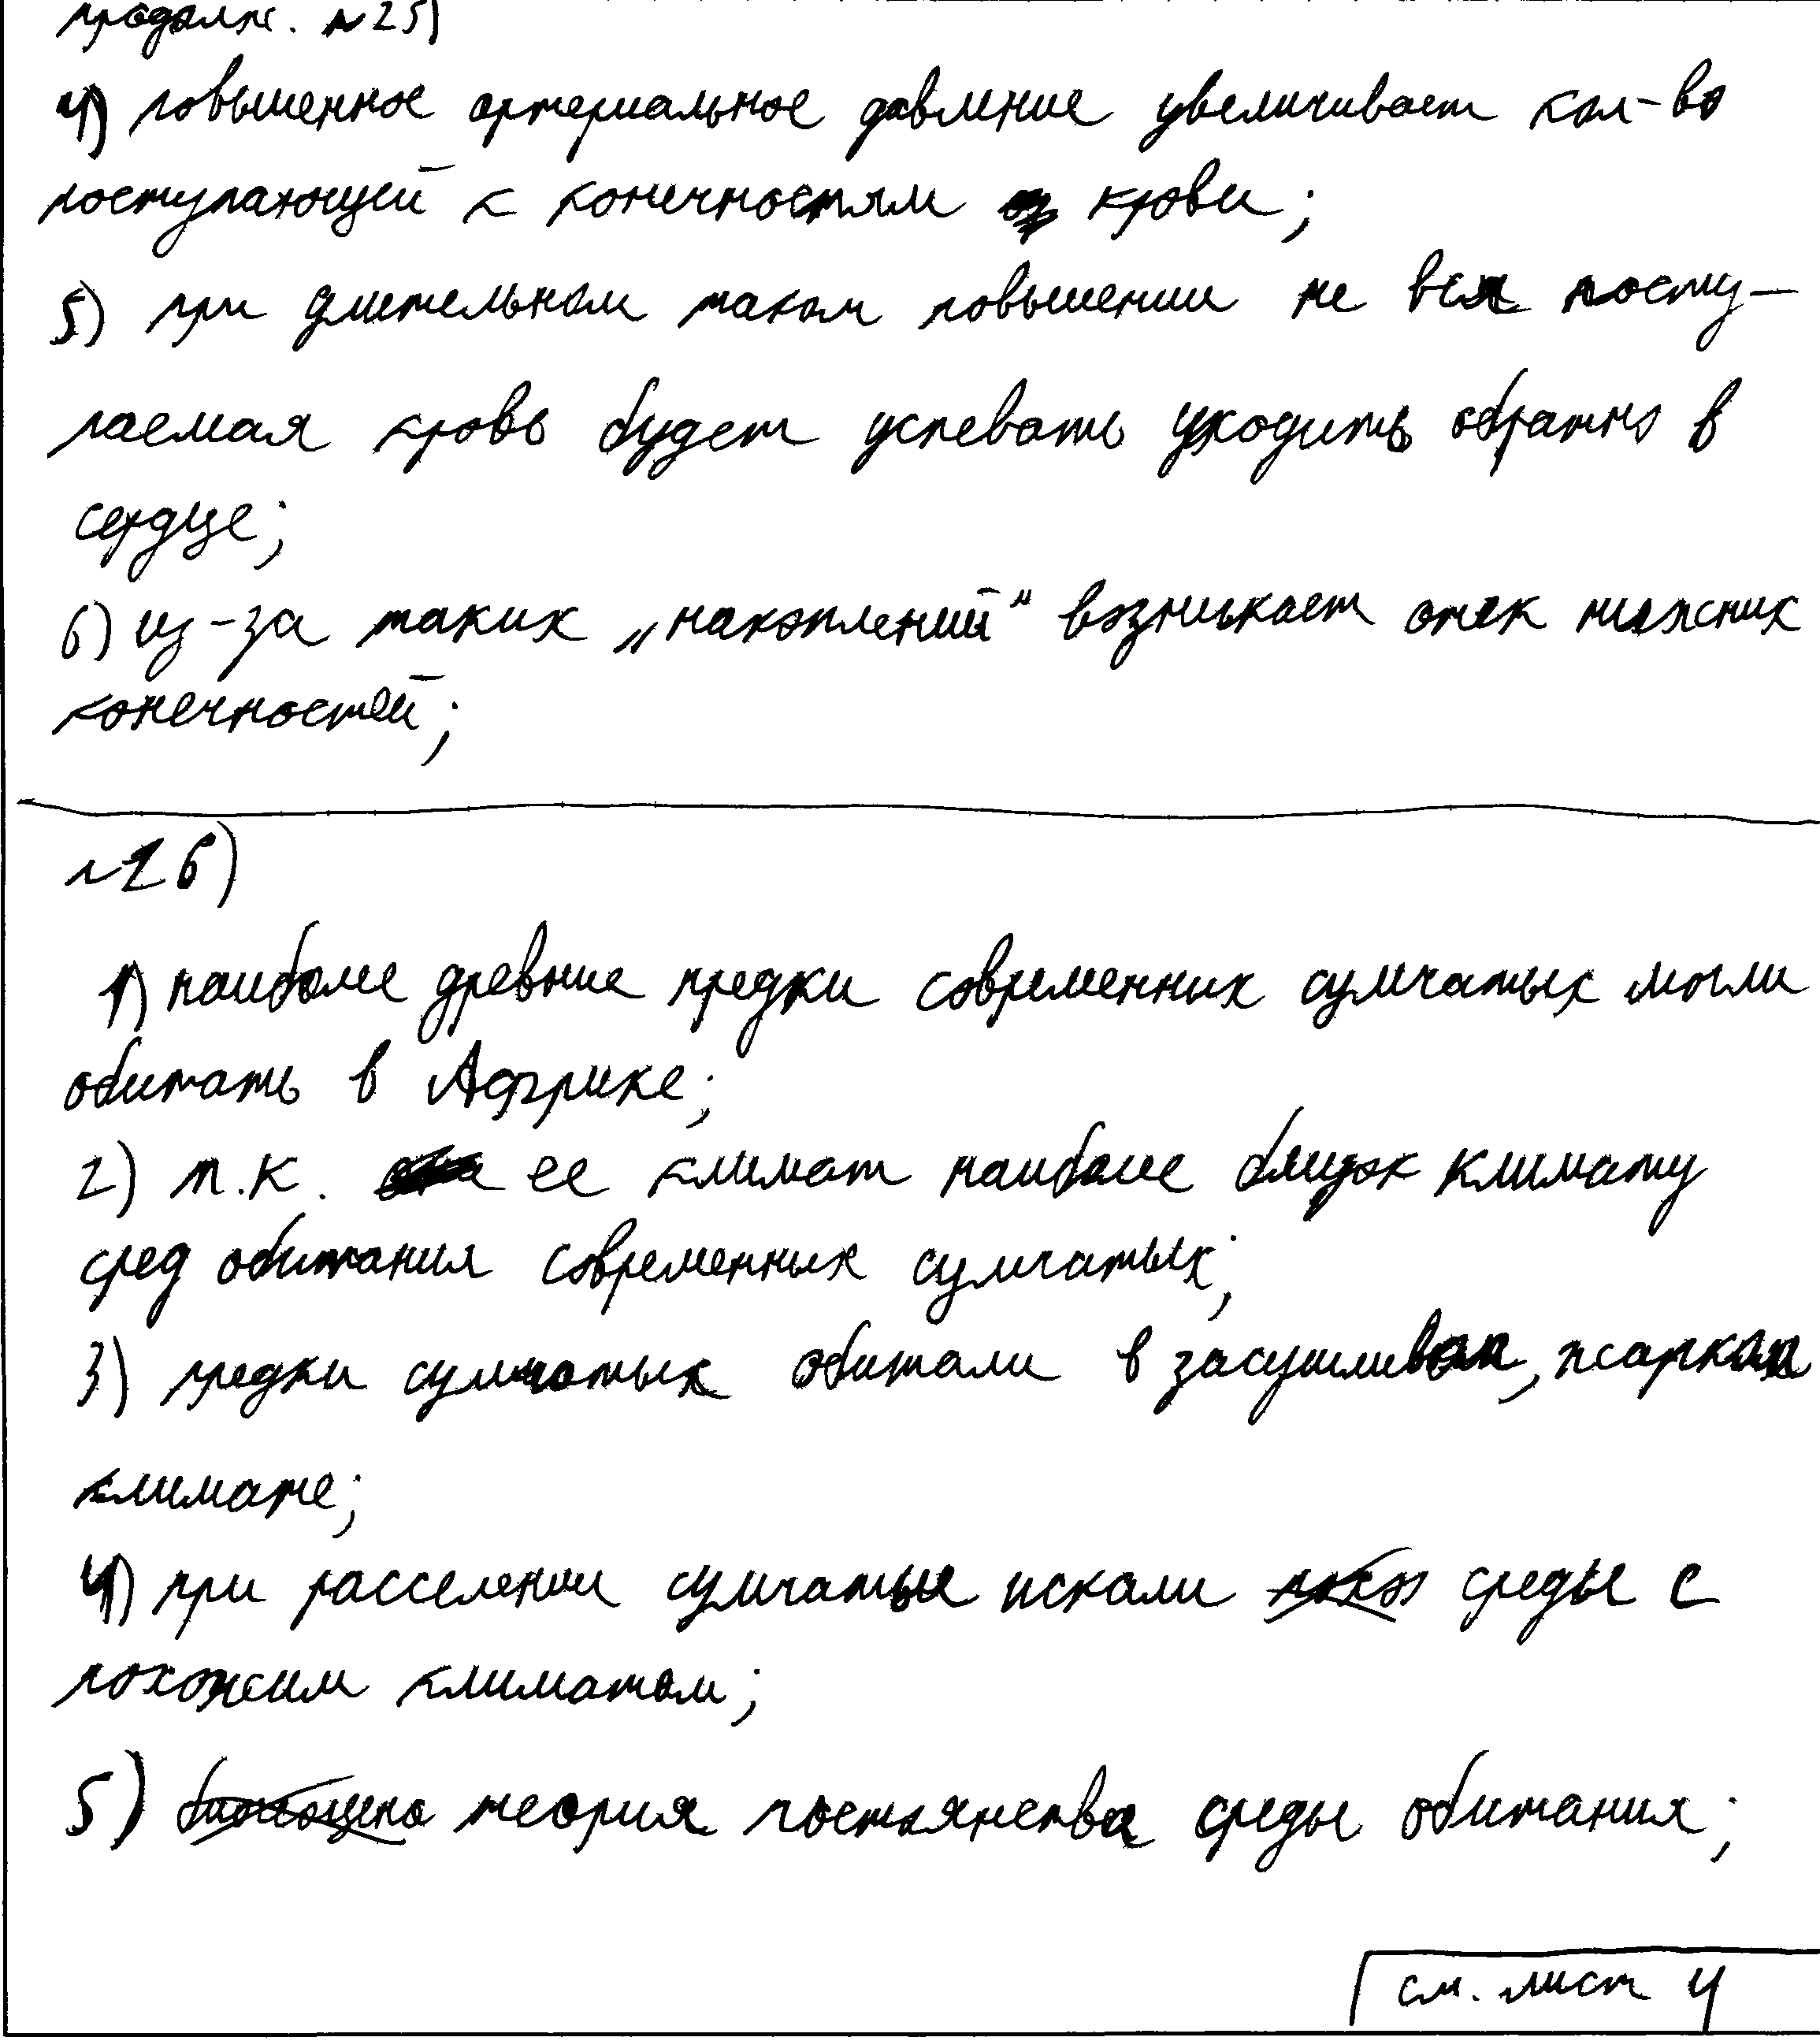 продолж. №25)
4) повышенное артериальное давление увеличивает кол-во
поступающей к конечностям крови;
5) при длительном таком повышении не вся посту-
паемая кровь будет успевать уходить обратно в
сердце;
6) из-за таких „накоплений" возникает отек нижних
конечностей;
№26)
1) наиболее древние предки современных сумчатых могли
обитать в Африке;
2) т.к. ее климат наиболее близок климату
сред обитания современных сумчатых;
3) предки сумчатых обитали в засушливом, жарком
климате;
4) при расселении сумчатые искали среды с
похожим климатом;
5) теория постоянства среды обитания;
см. лист 4